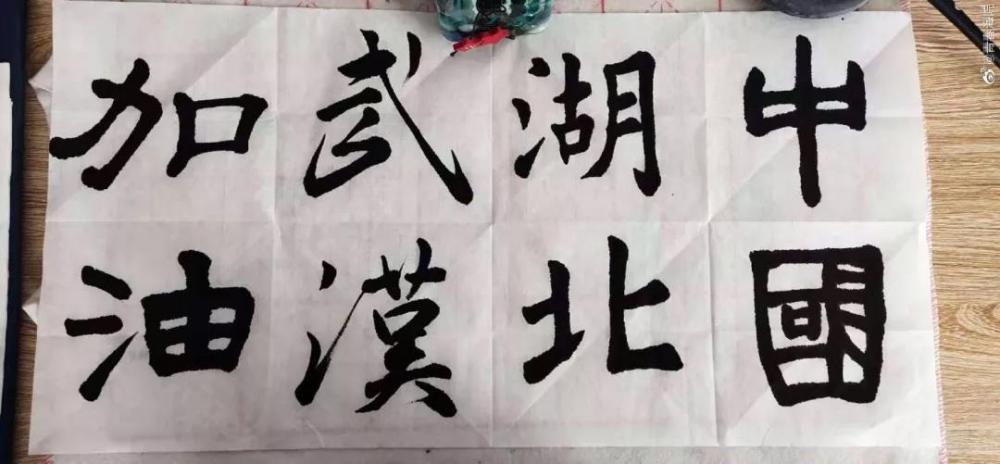 中國
湖北
武漢
加油